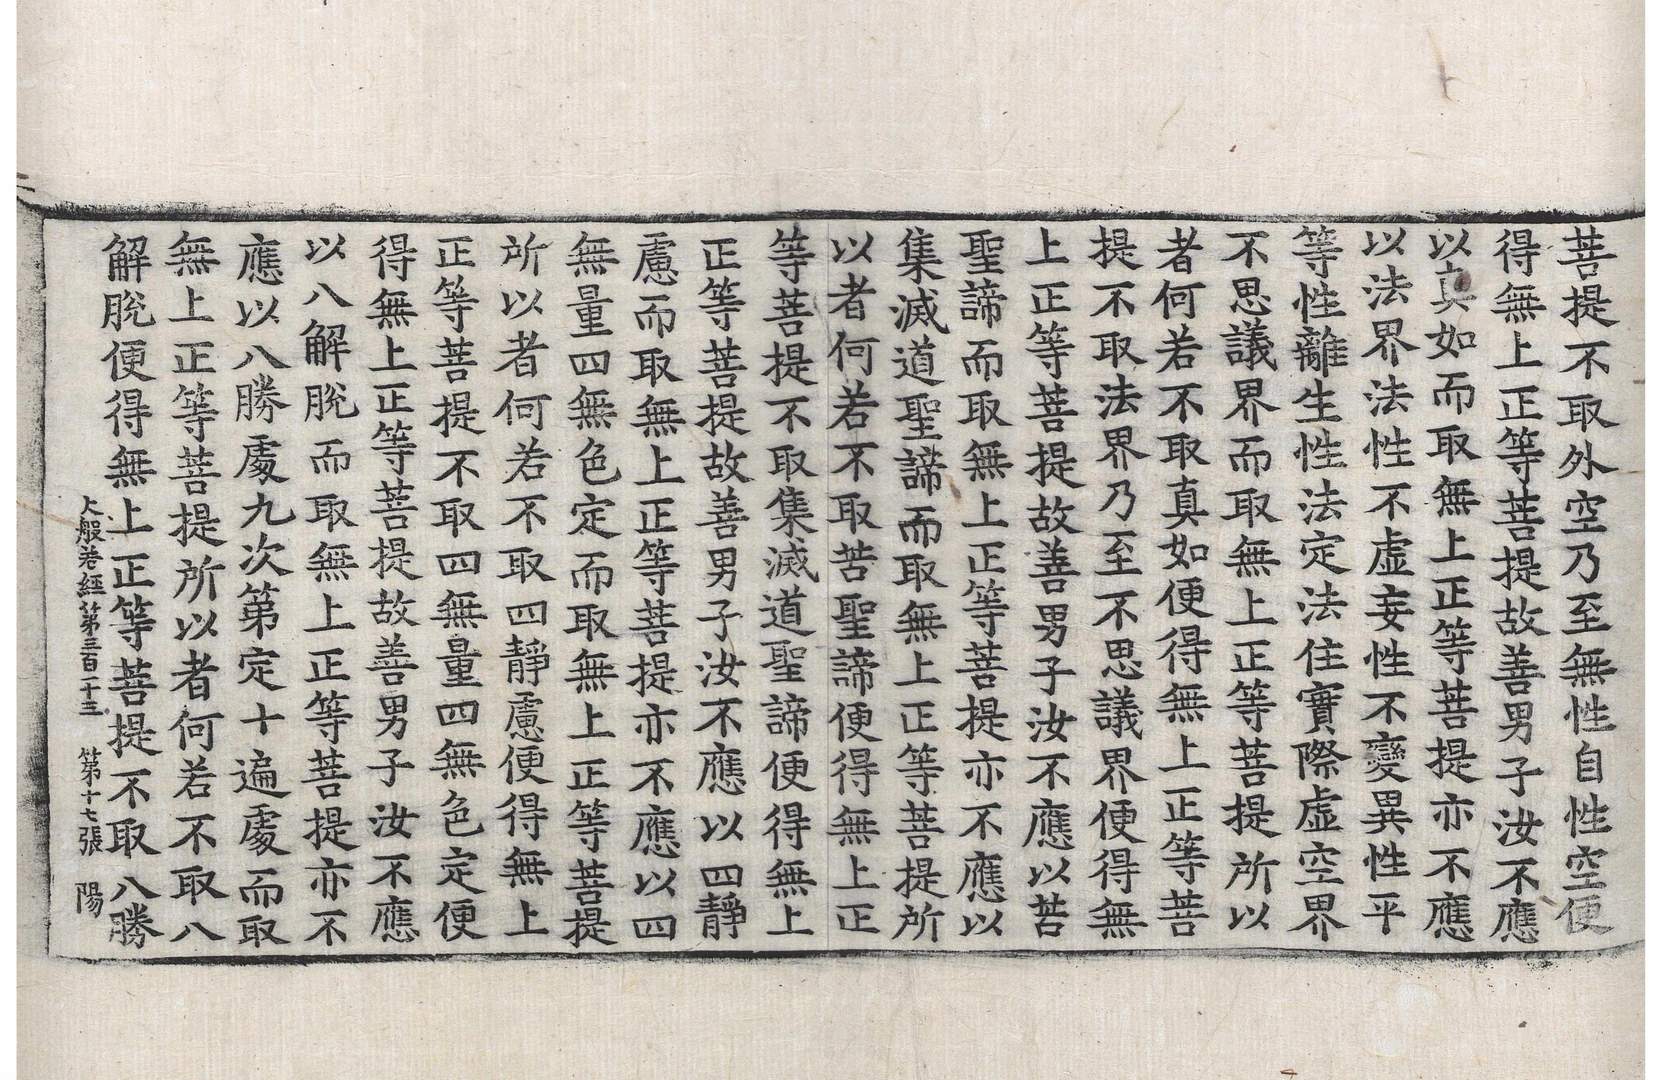 菩提不取外空乃至無性自性空便
得無上正等菩提故善男子汝不應
以真如而取無上正等菩提亦不應
以法界法性不虛妄性不變異性平
等性離生性法定法住實際虛空界
不思議界而取無上正等菩提所以
者何若不取真如便得無上正等菩
提不取法界乃至不思議界便得無
上正等菩提故善男子汝不應以苦
聖諦而取無上正等菩提亦不應以
集滅道聖諦而取無上正等菩提所
以者何若不取苦聖諦便得無上正
等菩提不取集滅道聖諦便得無上
正等菩提故善男子汝不應以四靜
慮而取無上正等菩提亦不應以四
無量四無色定而取無上正等菩提
所以者何若不取四靜慮便得無上
正等菩提不取四無量四無色定便
得無上正等菩提故善男子汝不應
以八解脫而取無上正等菩提亦不
應以八勝處九次第定十遍處而取
無上正等菩提所以者何若不取八
解脫便得無上正等菩提不取八勝
大般若經第三百一十三 第十七張 陽